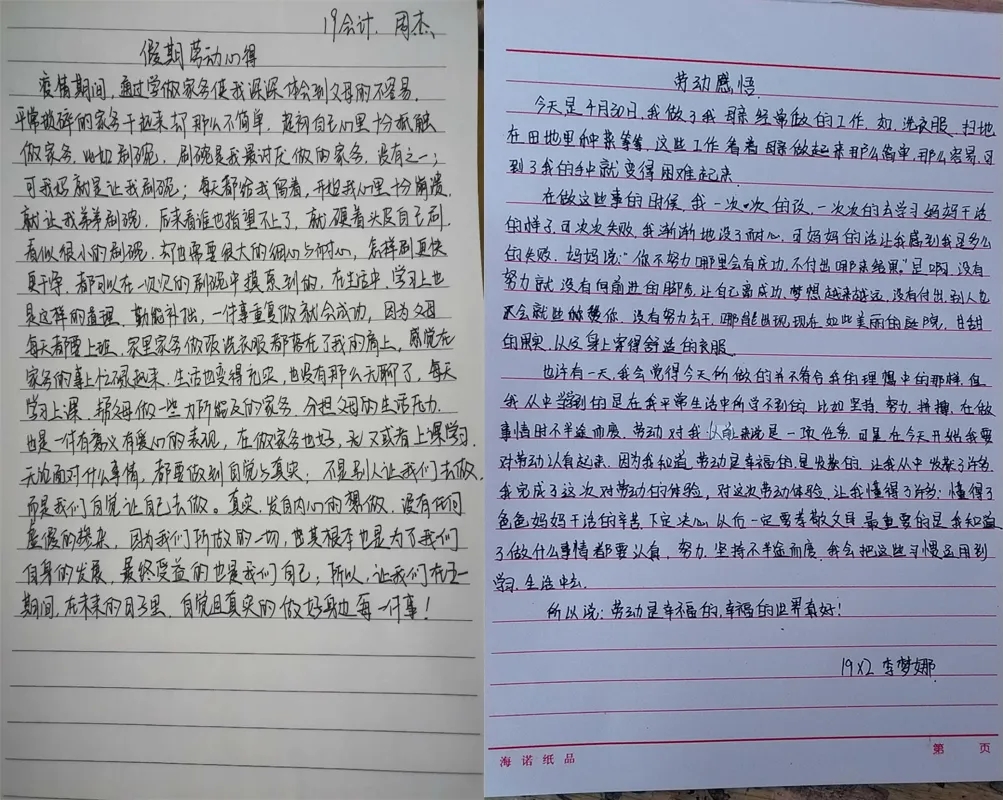 19会计、周杰
假期劳动心得
疫情期间,通过学做家务使我深深体会到父母的不容易.
平常琐碎的家务干起来却那么不简单,起初自己心里十分抵触
做家务,比如刷碗,刷碗是我最讨厌做的家务,没有之一;
可我妈就是让我刷碗;每天都给我留着,开始我心里十分崩溃,
就让我弟弟刷碗,后来看谁也指望不上了,就硬着头皮自己刷.
看似很小的刷碗,却也需要很大的细心与耐心,怎样刷更快
更干净,都可以在一次次的刷碗中摸索到的,在生活中,学习上也
是这样的道理,勤能补拙,一件事重复做就会成功,因为父母
每天都要上班,家里家务做饭洗衣服都落在了我的肩上,感觉在
家务的事上忙碌起来,生活也变得充实,也没有那么无聊了,每天
学习上课,帮父母做一些力所能及的家务,分担父母的生活压力.
也是一件有意义有爱心的表现,在做家务也好,又或者上课学习.
无论面对什么事情,都要做到自觉与真实,不是别人让我们去做,
而是我们自觉让自己去做。真实,发自内心的想做,没有任何
虚假的掺杂,因为我们所做的一切,也其根本也是为了我们
自身的发展,最终受益的也是我们自己,所以,让我们在五一
期间,在未来的日子里,自觉且真实的做好身边每一件事!
劳动感悟.
今天是4月30日,我做了我母亲经常做的工作,如:洗衣服、扫地
在田地里种菜等等,这些工作看着母亲做起来那么简单,那么容易,可
到了我的手中就变得困难起来.
在做这些事的时候,我一次次的改,一次次的去学习妈妈干活
的样子,可次次失败,我渐渐地没了耐心,可妈妈的话让我感到我是多么
的失败,妈妈说:“你不努力哪里会有成功,不付出哪来结果。”是啊,没有
努力就没有向前进的脚步,让自己离成功、梦想越来越远,没有付出,别人也
不会就些你,没有努力去干,哪能出现,现在如此美丽的庭院,甘甜
的果,从这身上穿得舒适的衣服.
也许有一天,我会觉得今天所做的并不符合我的理想中的那样,但
我从中学到的是在我平常生活中所学不到的,比如坚持、努力、拼搏,在做
事情时不半途而废,劳动对我以前来说是一项任务,可是在今天开始我要
对劳动认真起来,因为我知道,劳动是幸福的,是发散的,让我从中发散了许多.
我完成了这次对劳动的体验,对这次劳动体验,让我懂得了许多:懂得了
爸爸妈妈干活的辛苦,下定决心从后一定要孝敬父母,最重要的是我知道
了做什么事情都要认真、努力、坚持不半途而废,我会把这些习惯运用到
学习、生活中去.
所以说:劳动是幸福的,幸福的世界真好!
19X2 李梦娜.
海诺纸品
第 页